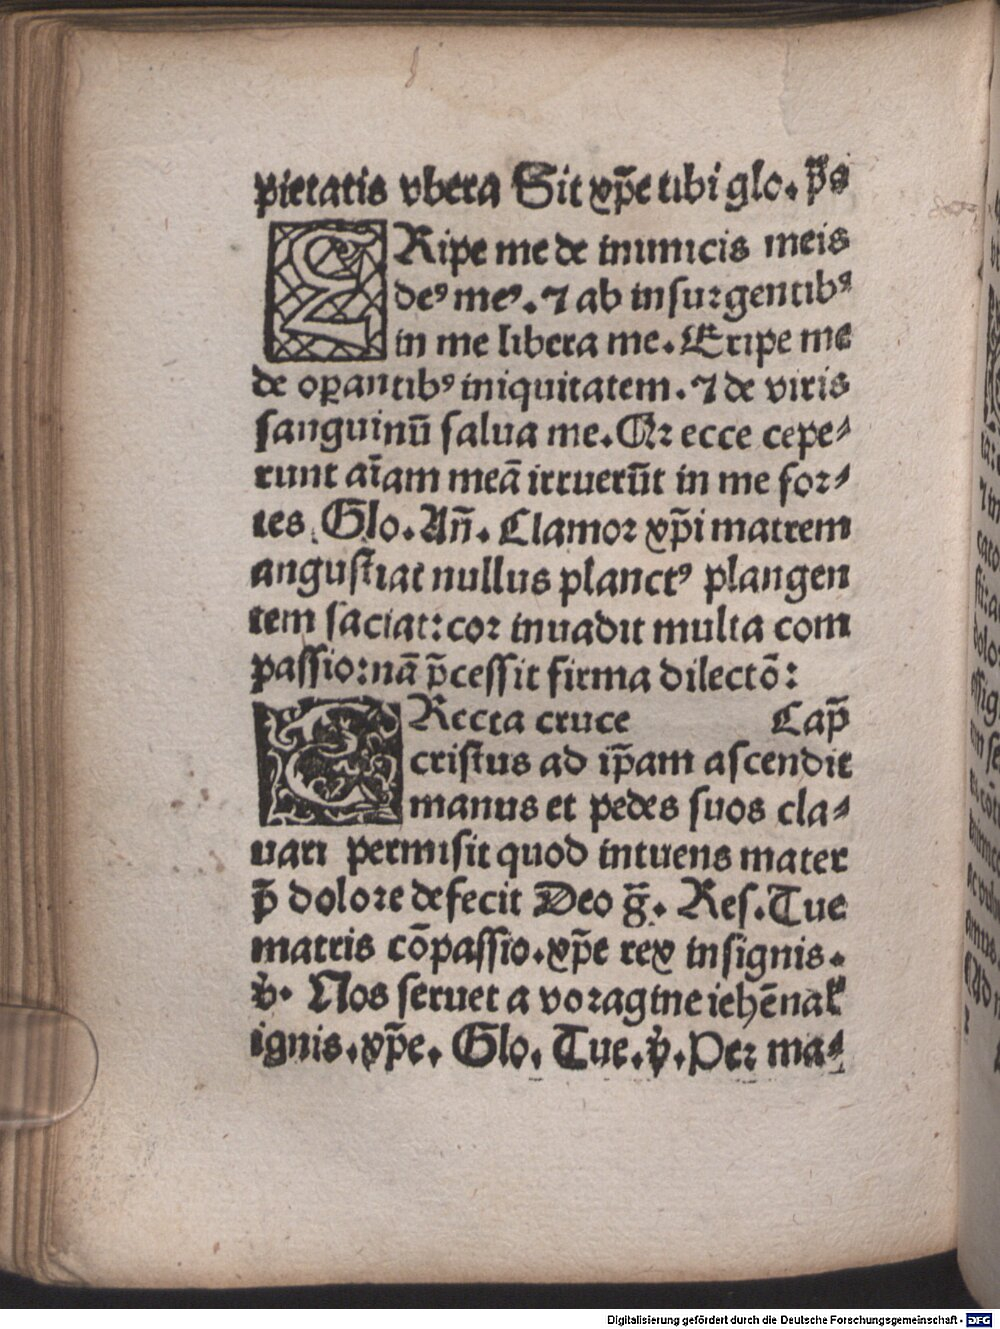 pietatis vbera Sit xp̄e tibi glo. p̄s
ERipe me de inimicis meis
deꝰ meꝰ. ⁊ ab insurgentibꝰ
in me libera me. Eripe me
de oꝑantibꝰ iniquitatem. ⁊ de viris
sanguinū salua me. Qꝛ ecce cepe⸗
runt aīam meā irruerūt in me for⸗
tes. Glo. Añ. Clamor xp̄i matrem
angustiat nullus planctꝰ plangen
tem saciat: cor inuadit multa com
passio: nā p̄cessit firma dilectō:
ERecta cruce Cap̄
cristus ad ip̄am ascendit
manus et pedes suos cla⸗
uari permisit quod intuens mater
p̄ dolore defecit Deo ḡ. Res. Tue
matris cōpassio. xp̄e rex insignis.
℣. Nos seruet a voragine iehēnal
ignis. xp̄e. Glo. Tue. ℣. Per ma⸗
Digitalisierung gefördert durch die Deutsche Forschungsgemeinschaft - DFG